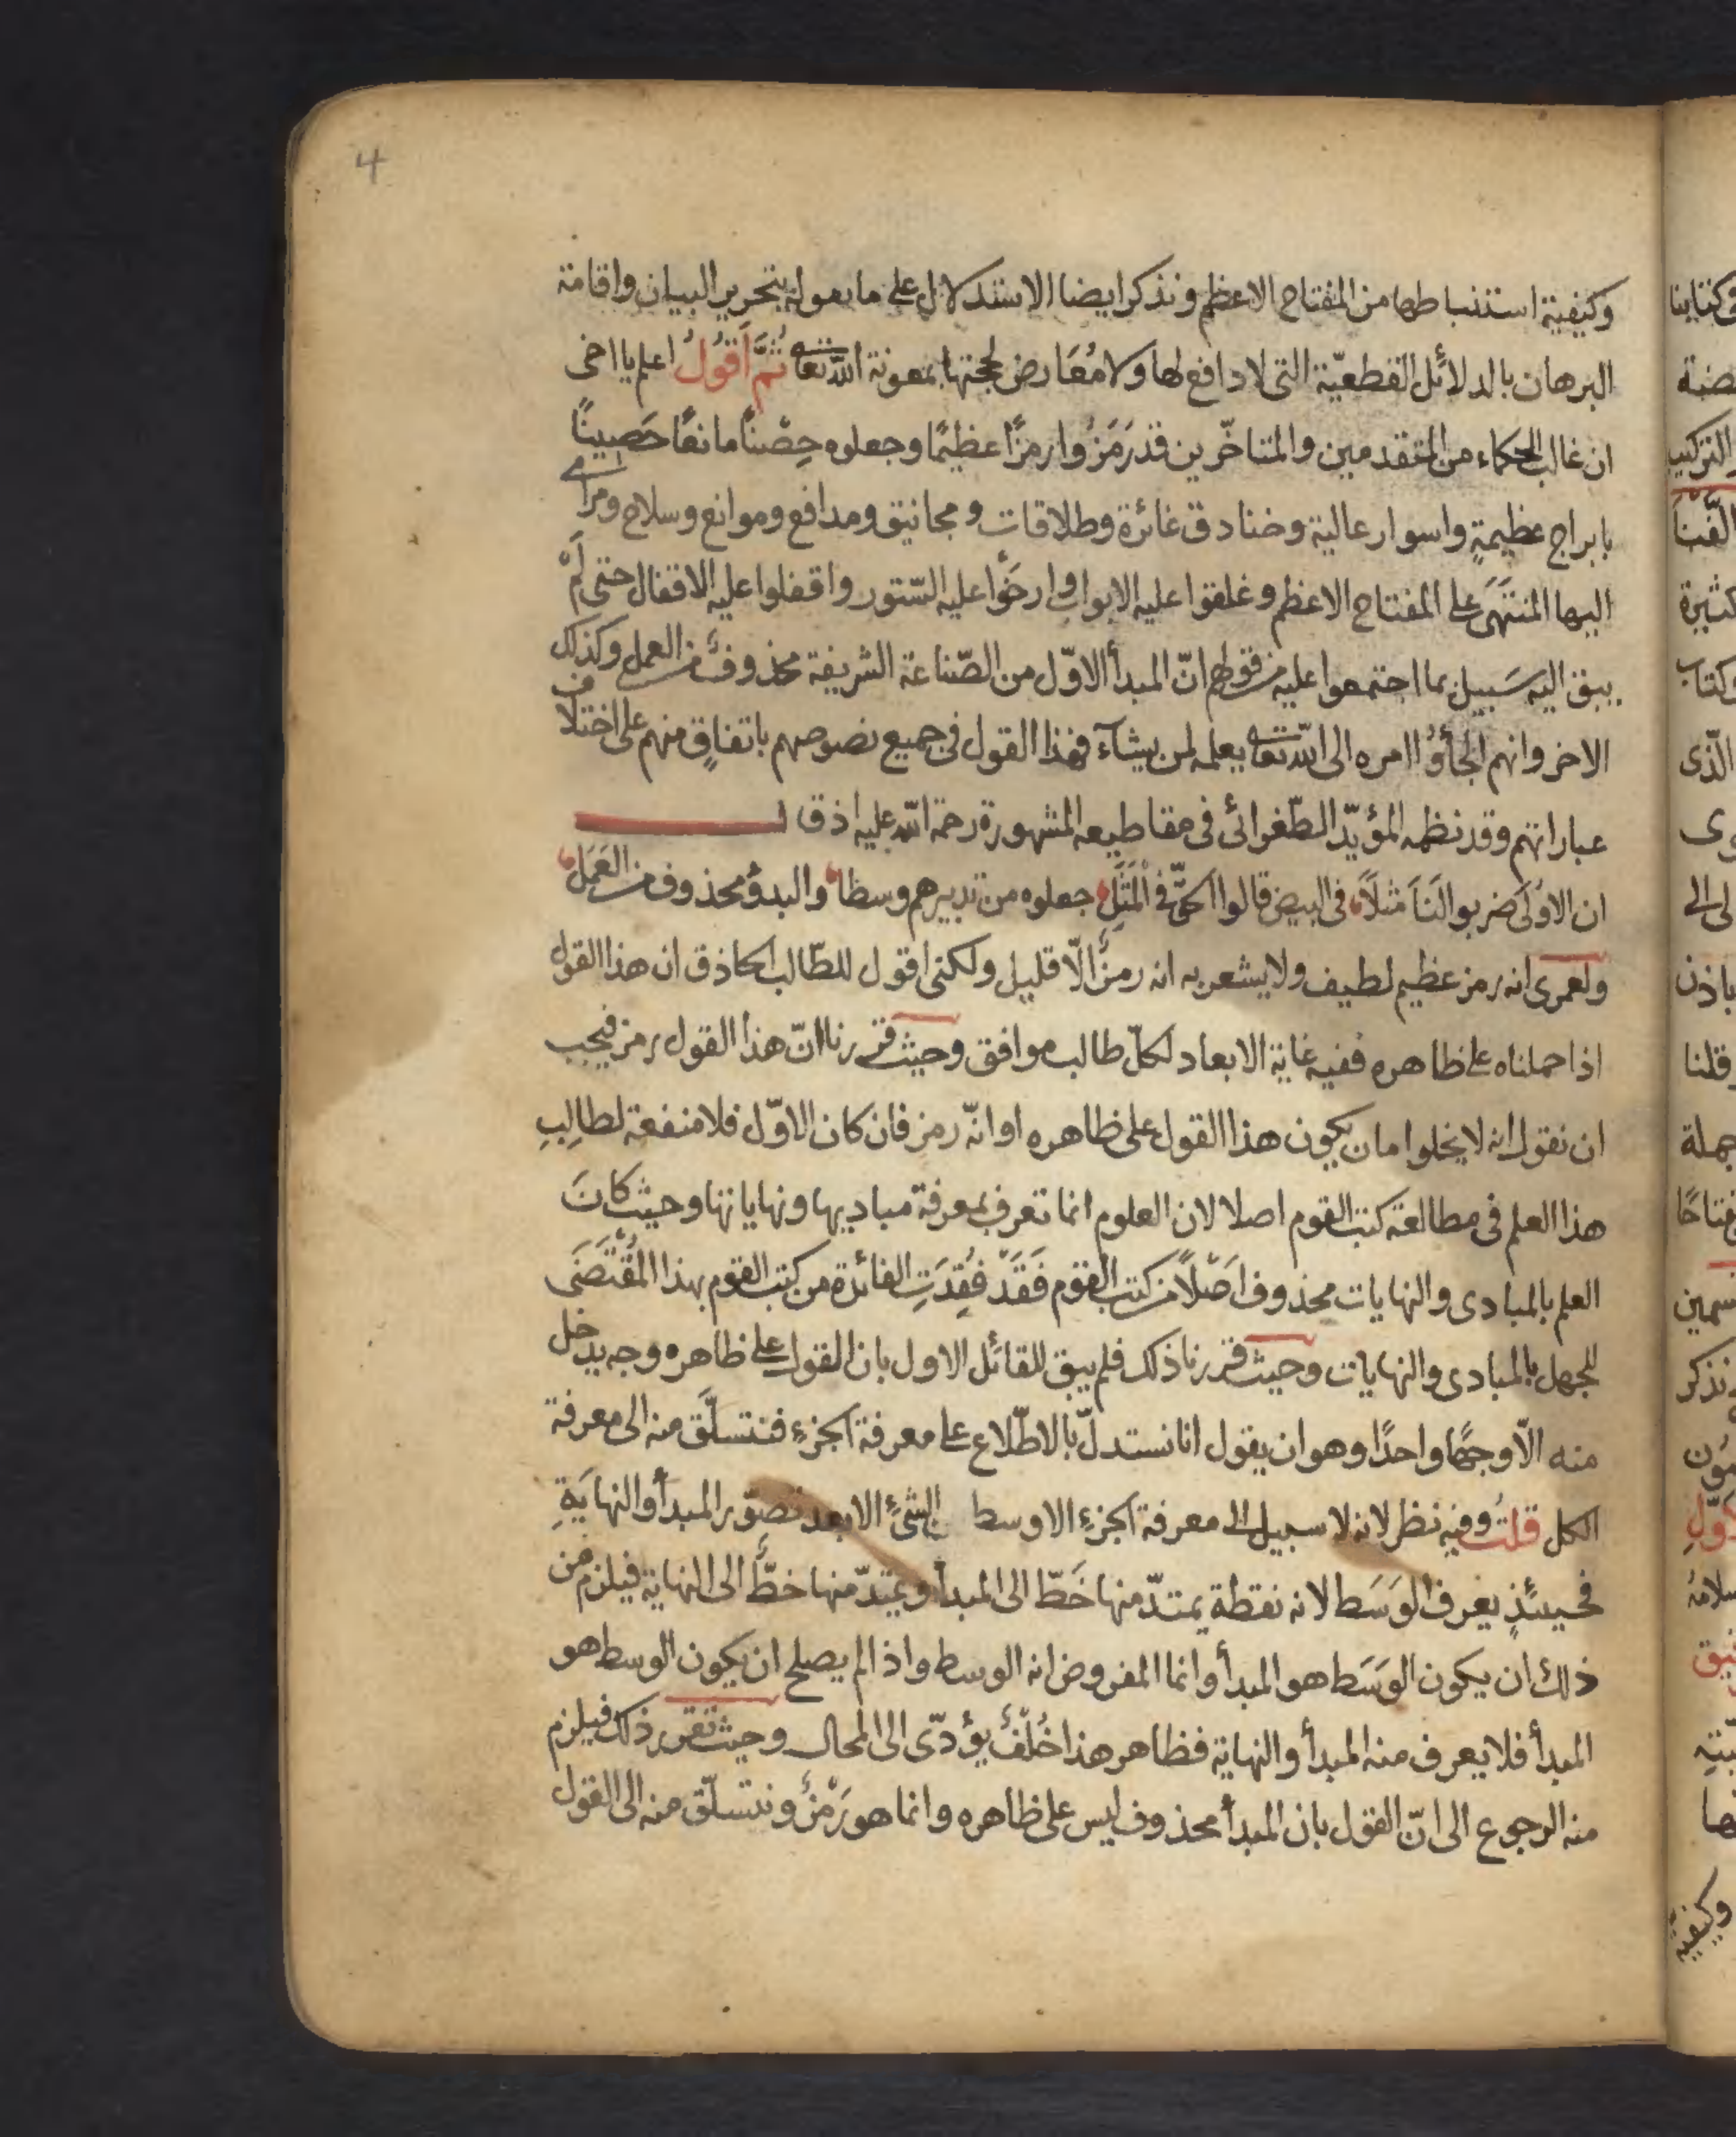 4
وكيفية استنباطها من المفتاح الاعظم ونذكر ايضا الاستدلال على ما بتحرير البيان واقامة
البرهان بالدلائل القطعيّة التى لا دافع لها ولا مُعَارض لحجتها بمعونة اللّه تعا ثُمَّ اَقُولُ اعلم يا اخى
ان غالب الحكماء من المتقدمين والمتاخّرين قد رَمَزُوا رمزًا عظيمًا وجعلوه حِصْنًا مانعًا حَصِينًا
بابراج عظيمةٍ واسوار عالية وخنادق غائرة وطلاقات ومجانيق ومدافع وموانع وسلاح ومراسى
اليها المنتهَى على المفتاح الاعظم وغلقوا عليه الابواب وارخَوْا عليه السّتور واقفلوا عليه الاقفال حتى لَمْ
يبق اليه سَبيل بما اجتمعوا عليه من قولهم انّ المبدأ الاوّل من الصّناعة الشريفة محذوفٌ من العمل وكذلك
الاخر وانهم الجأوُا امره الى اللّه تعا يعلمه لمن يشآء فهذا القول فى جميع نصوصهم باتفاقٍ منهم على اختلاف
عباراتهم وقد نظمه المؤيّد الطّغرائى فى مقاطيعه المشهورة رحمة اللّه عليه اذ قال
ان الاوُلَى ضربوا لَنَا مَثلَاً فى البيض قالوا الحقّ فى الْمَثَلِ جعلوه من تدبيرهم وسطا والبدؤ محذوف من العَمَلِ
ولعمرى انه رمز عظيم لطيف ولا يشعر به انه رمزٌ الّا قليل ولكنى اقول للطّالب الحاذق ان هذا القول
اذا حملناه على ظاهره ففيه غاية الابعاد لكلّ طالب موافق وحيث قررنا انّ هذا القول رمز فيجب
ان نقول انه لا يخلوا مان يكون هذا القول على ظاهره او انّه رمز فان كان الاوّل فلا منفعة لطالِبِ
هذا العلم فى مطالعة كتب القوم اصلا لان العلوم انما تعرف بمعرفة مباديها ونهاياتها وحيث كانَ
العلم بالمبادى والنهايات محذوف اَصْلًا من كتب القوم فَقَدْ فُقِدَتِ الفائدة من كتب القوم بهذا الْمُقْتَضَى
للجهل بالمبادى والنهايات وحيث قررنا ذلك فلم يبق للقائل الاول بان القول على ظاهره وجه يدخل
منه الّا وجهًا واحدًا وهو ان يقول انا نستدلّ بالاطّلاع على معرفة الجزءِ فنتسلَّق منه الى معرفة
الكل قلتُ وفيه نظر لانه لا سبيل الى معرفة الجزءِ الاوسط الشئِ الابعد تصوّر المبدأ والنهايَةِ
فحينئذٍ يعرف الوَسَط لانه نقطة يمتدّ منها خَطّ الى المبدأ ويمتدّ منها خطٌّ الى النهاية فيلزم من
ذلك ان يكون الوَسَط هو المبدأ وانما المفروض انه الوسط واذا لم يصلح ان يكون الوسط هو
المبدأ فلا يعرف منه المبدأ والنهاية فظاهر هذا خُلْفٌ يؤدّى الى المحال وحيث تقرر ذلك فيلزم
منه الرجوع الى انّ القول بان المبدأ محذوف ليس على ظاهره وانما هو رَمْزٌ ونتسلّق منه الى القول